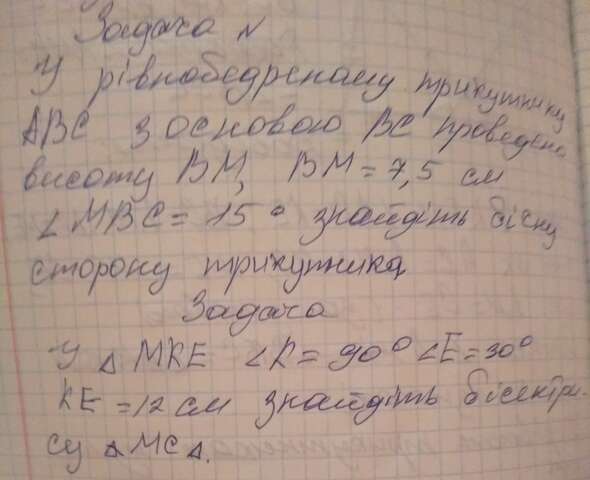 Задача N
У рівнобедреному трикутнику
ABC з основою BC проведено
висоту BM, BM = 7,5 см
∠MBC = 15° знайдіть бічну
сторону трикутника
Задача
У △ MKE ∠K = 90° ∠E = 30°
KE = 12 см знайдіть бісектри-
су △ MC△.